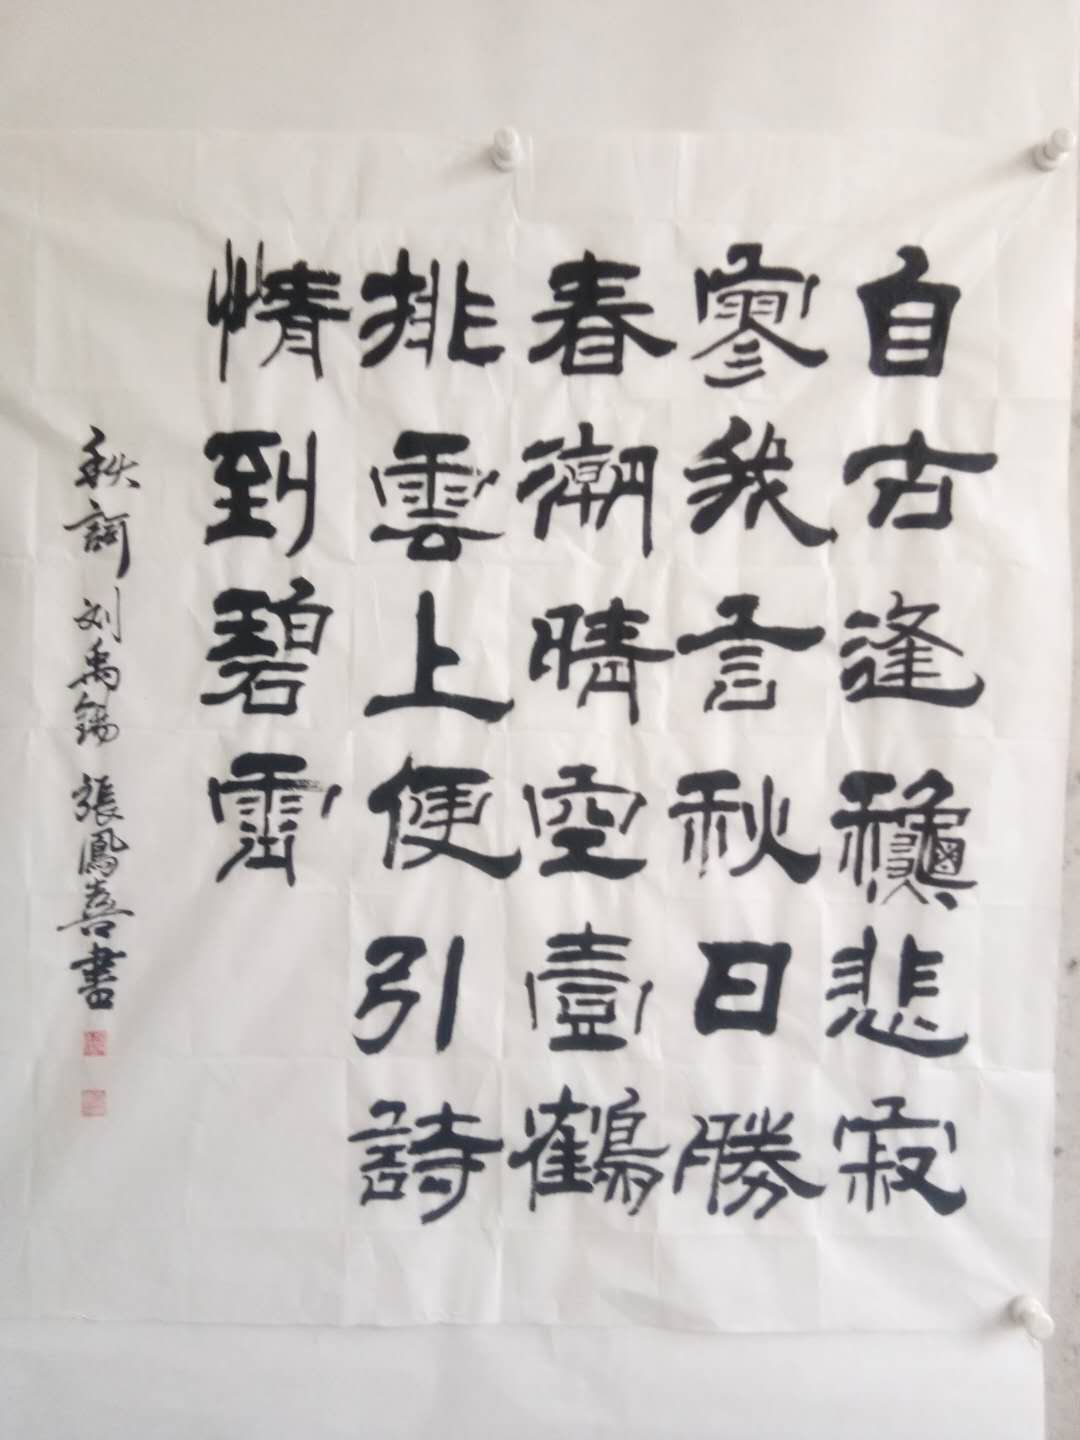 自古逢龝悲寂
寥我言秋日勝
春潮晴空壹鶴
排雲上便引詩
情到碧霄
秋詞 刘禹錫 張鳳喜書